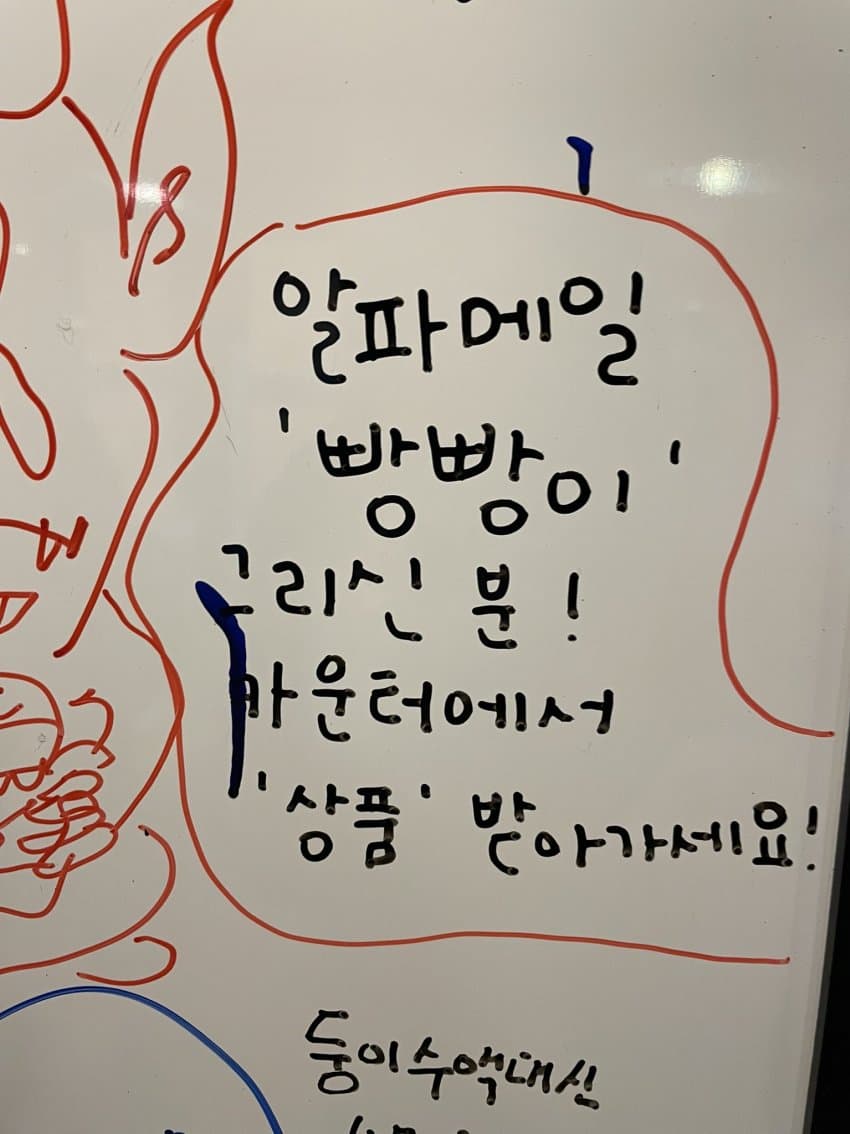 알파메일
'빵빵이'
그리신 분!
카운터에서
'상품' 받아가세요!
둥이수액대신